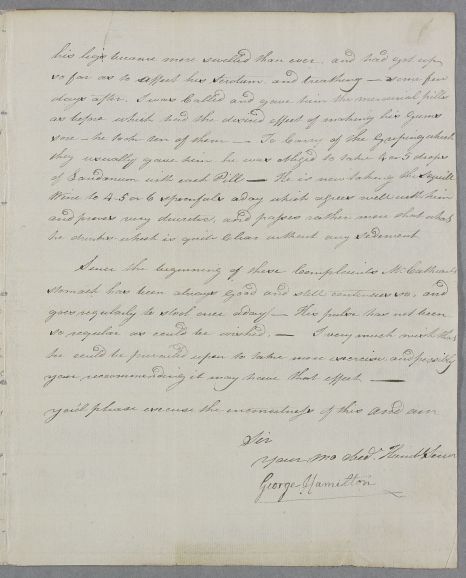 his legs became more swelled than ever, and had got up
so far as to affect his Scrotum, and breathing — some few
days after, I was Called and gave him the mercurial pills
as before which had the desired effect of making his Gums
sore — he took ten of them — To Carry of the Griping which
they usually gave him he was obliged to take 4 or 5 drops
of Laudanum with each Pill — He is now taking the Squill
Wine to 4. 5 or 6 spoonfuls a day which agrees well with him
and proves very diuretic, and passes rather more than what
he drinks which is quite Clear without any Sediment
Since the beginning of these Complaints Mr. Cathcarts
stomach has been always Good and still continues so, and
goes regularly to stool once a day — His pulse has not been
so regular as could be wished. — I very much wish that
he could be persuaded upon to take more exercise, and possibly
your recommending it may have that effect —
you'll please excuse the incorrectness of this and am
Sir
your mo Obed. Humble Servt
George Hamilton